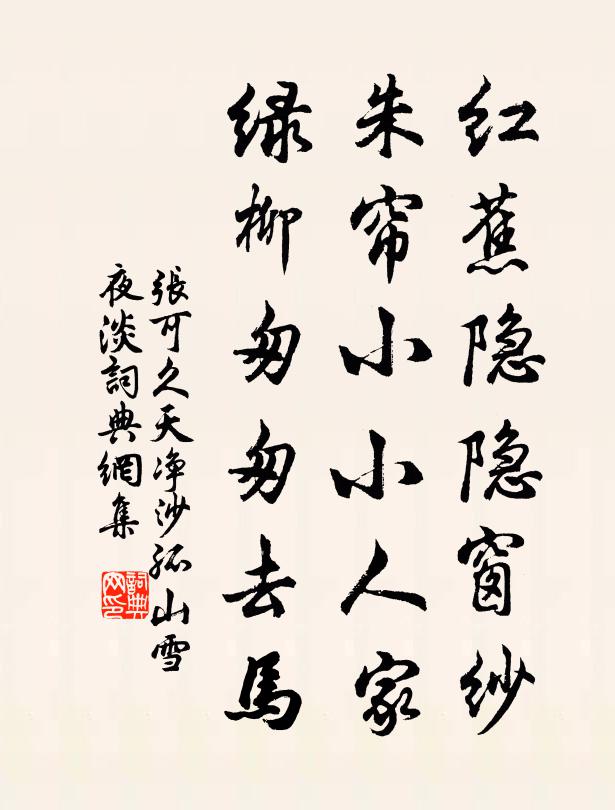 红蕉隐隐窗纱
朱帘小小人家
绿柳匆匆去馬
張可久天净沙孤山雪
夜淡詞典網集
詞典
网印